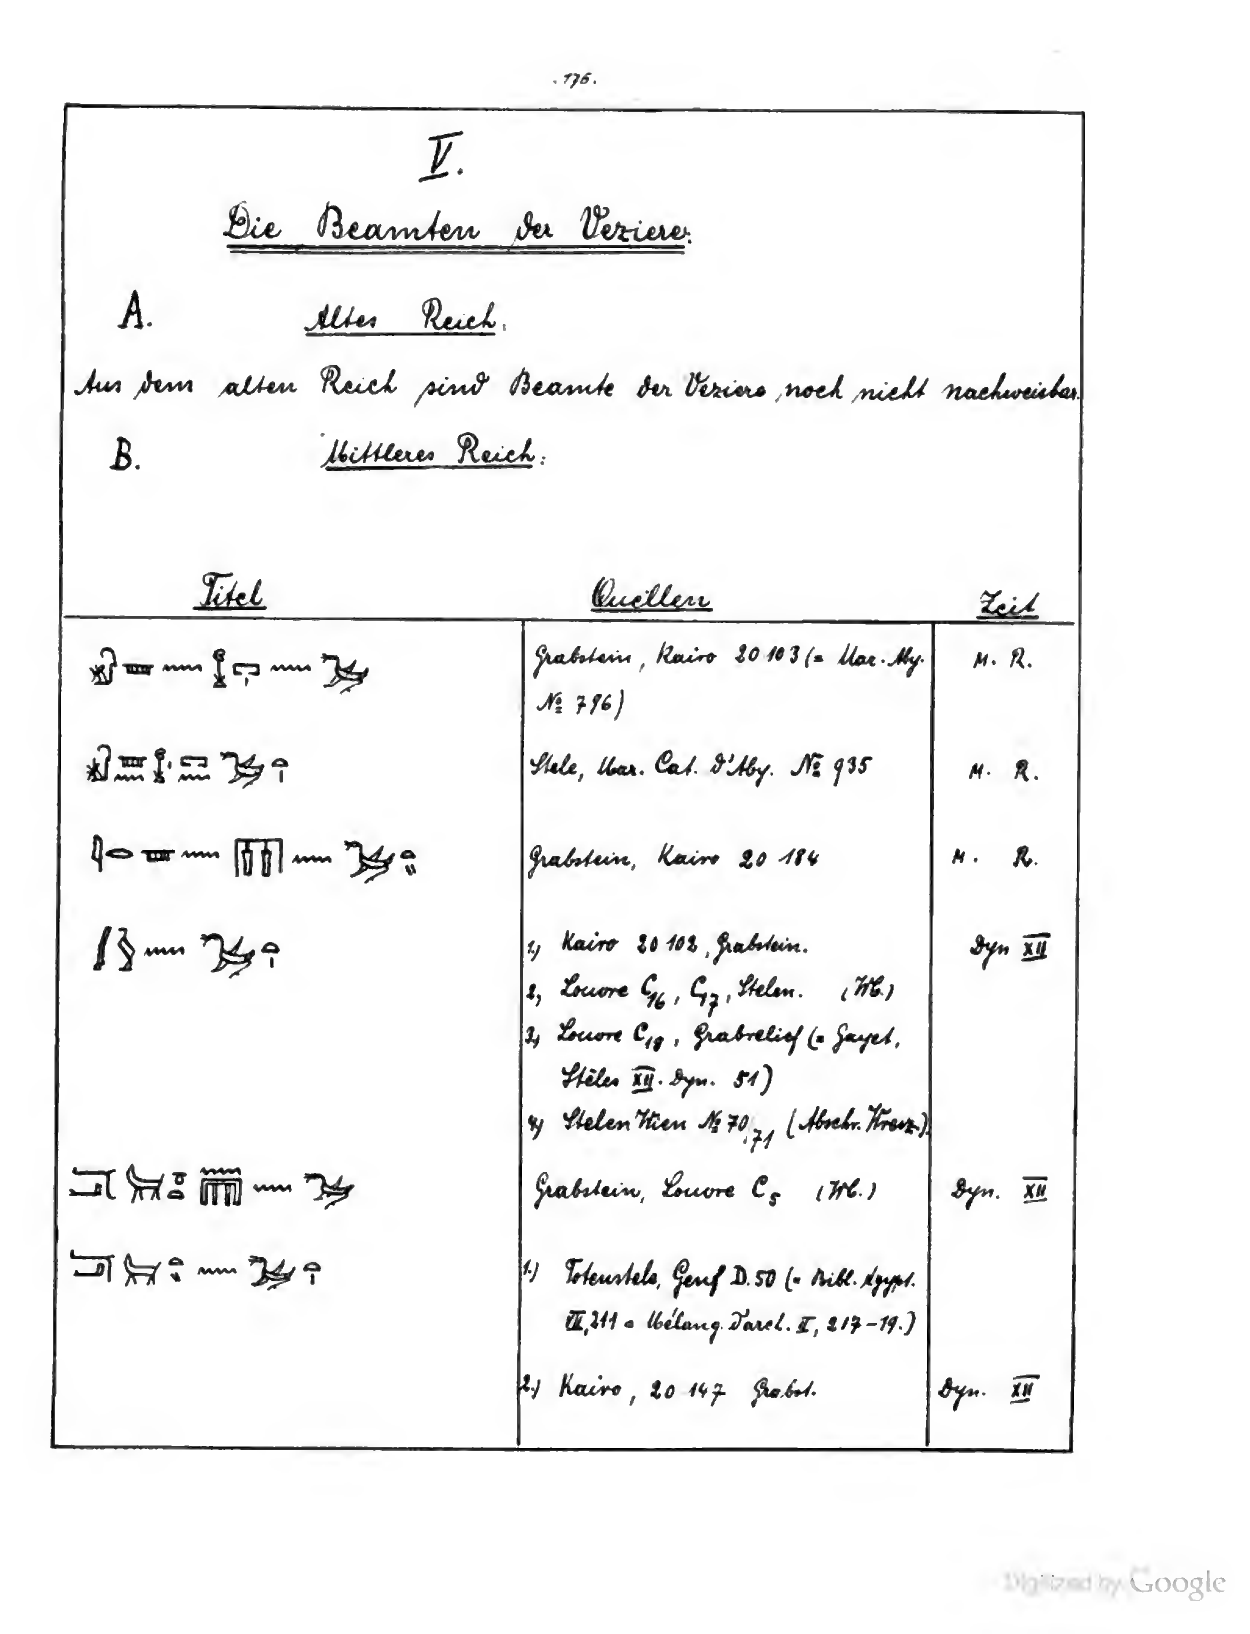 . 176.
V.
Die Beamten der Veziere.
A. Altes Reich.
Aus dem alten Reich sind Beamte der Veziere noch nicht nachweisbar.
B. Mittleres Reich.
Titel Quellen Zeit
Grabstein, Kairo 20 103 (= Mar. Aby. M. R.
№ 796)
Stele, Mar. Cat. d'Aby. № 935 M. R.
Grabstein, Kairo 20 184 M. R.
1.) Kairo 20 102, Grabstein. Dyn XII
2.) Louvre C16, C17, Stelen. (Wb.)
3.) Louvre C18, Grabrelief (= Gayet,
Stèles XII. Dyn. 51)
4.) Stelen Wien № 70,71 (Abschr. Wresz.).
Grabstein, Louvre C5 (Wb.) Dyn. XII
1.) Totenstele, Genf D. 50 (= Bibl. Aegypt.
VII, 211 = Mélang. d'arch. II, 217-19.)
2.) Kairo, 20 147 Grabst. Dyn. XII
Digitized by Google